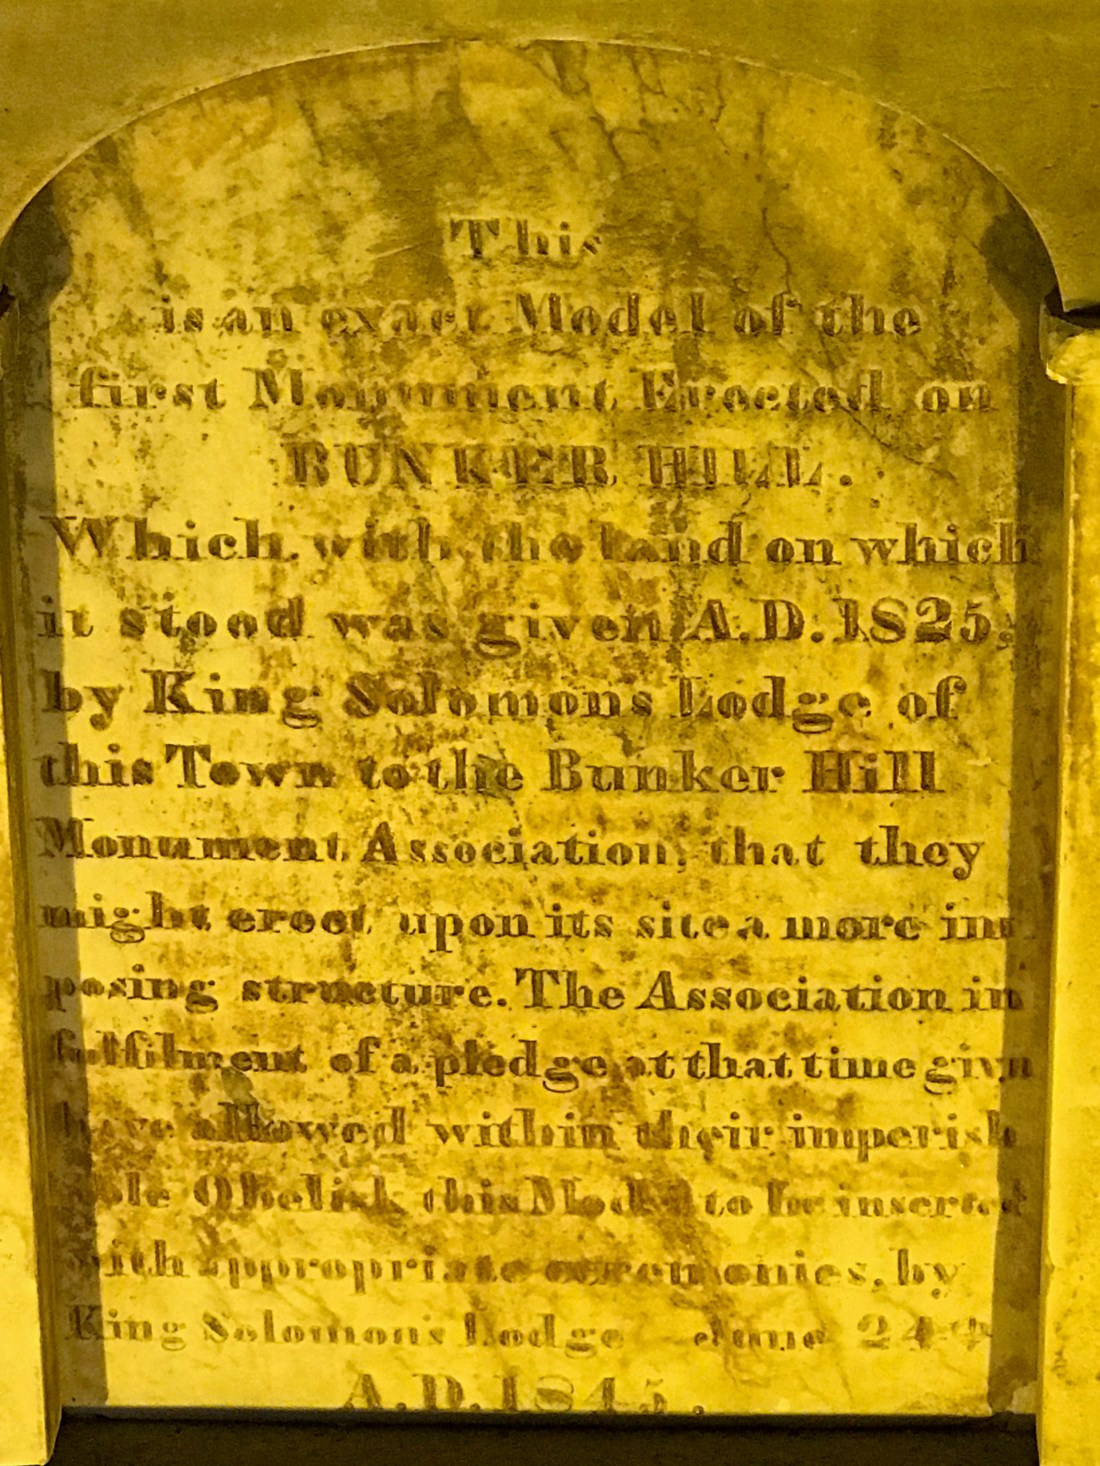 This
is an exact Model of the
first Monument Erected on
BUNKER HILL.
Which with the land on which
it stood was given A.D. 1825,
by King Solomons Lodge of
this Town to the Bunker Hill
Monument Association, that they
might erect upon its site a more im
posing structure. The Association in
fulfilment of a pledge at that time givn
have allowed within their imperish
able Obelisk this Model to be inserted
with appropriate ceremonies, by
King Solomon's Lodge June 24th
A.D. 1845.